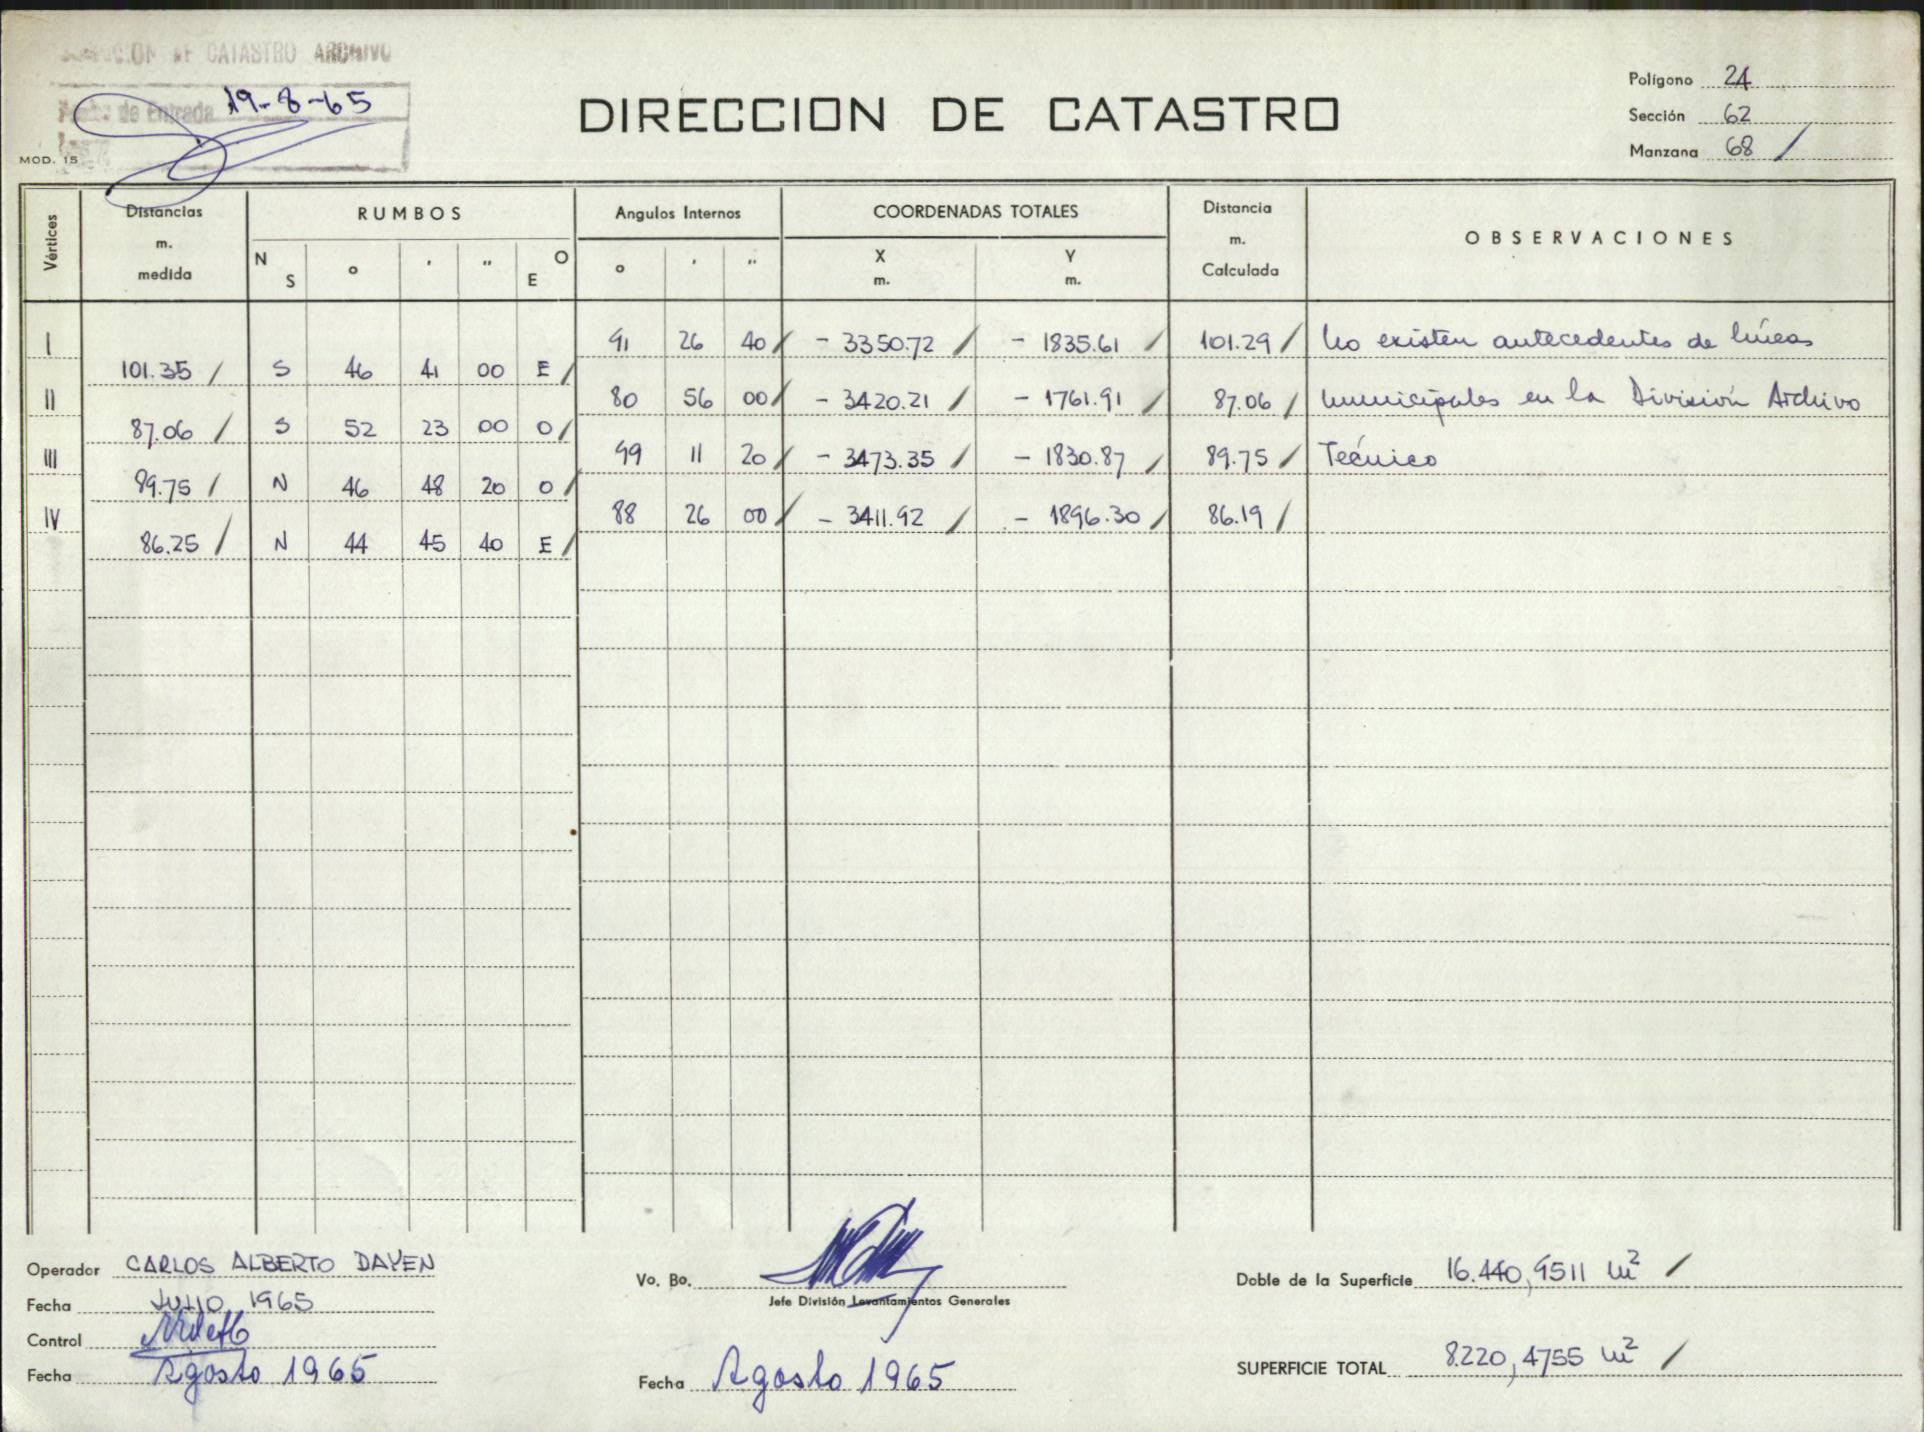 DE CATASTRO ARCHIVO
de Entrada 19-8-65
MOD. 15
DIRECCION DE CATASTRO
Polígono 24
Sección 62
Manzana 68 /
Vértices
Distancias m. medida
RUMBOS
N S ° ' " O E
Angulos Internos
° ' "
COORDENADAS TOTALES
X m. Y m.
Distancia m. Calculada
OBSERVACIONES
I 91 26 40 / - 3350.72 / - 1835.61 / 101.29 / No existen antecedentes de líneas
101.35 / S 46 41 00 E /
II 80 56 00 / - 3420.21 / - 1761.91 / 87.06 / municipales en la División Archivo
87.06 / S 52 23 00 O /
III 99 11 20 / - 3473.35 / - 1830.87 / 89.75 / Técnico
89.75 / N 46 48 20 O /
IV 88 26 00 / - 3411.92 / - 1896.30 / 86.19 /
86.25 / N 44 45 40 E /
Operador CARLOS ALBERTO DAYEN
Fecha JULIO 1965
Control
Fecha Agosto 1965
Vo. Bo.
Jefe División Levantamientos Generales
Fecha Agosto 1965
Doble de la Superficie 16.440,9511 m² /
SUPERFICIE TOTAL 8.220,4755 m² /